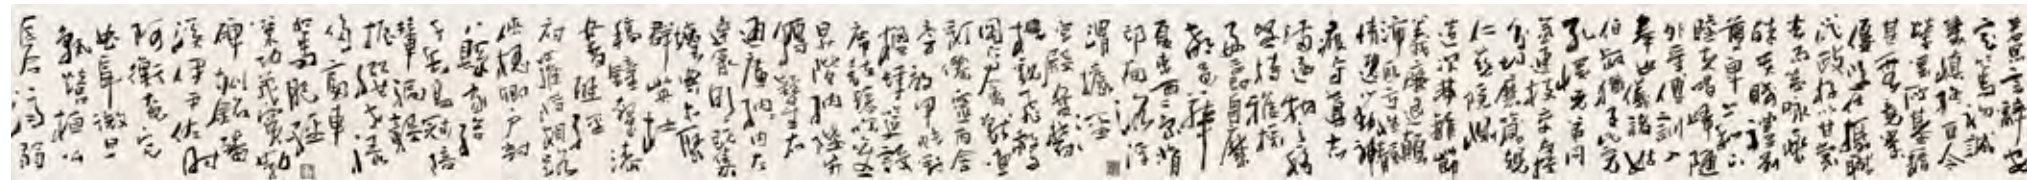 若思言辭安
定篤初誠
美慎終宜令
榮業所基籍
甚無竟學
優登仕攝職
從政存以甘棠
去而益詠樂
殊貴賤禮別
尊卑上和下
睦夫唱婦隨
外受傅訓入
奉母儀諸姑
伯叔猶子比兒
孔懷兄弟同
氣連枝交友投
分切磨箴規
仁慈隱惻
造次弗離節
義廉退顛
沛匪虧性靜
情逸心動神
疲守真志
滿逐物意移
堅持雅操
好爵自縻
都邑華
夏東西二京背
邙面洛浮
渭據涇
宮殿盤鬱
樓觀飛驚
圖寫禽獸畫
彩仙靈丙舍
旁啟甲帳對
楹肆筵設
席鼓瑟吹笙
升階納陛弁
轉疑星右
通廣內左
達承明既集
墳典亦聚
群英杜
稿鍾隸漆
書壁經
府羅將相路
俠槐卿戶封
八縣家給
千兵高冠陪
輦驅轂
振纓世祿
侈富車
駕肥輕
策功茂實勒
碑刻銘磻
溪伊尹佐時
阿衡奄宅
曲阜微旦
孰營桓公
匡合濟弱